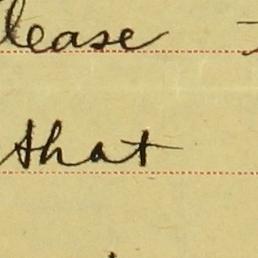 lease
that